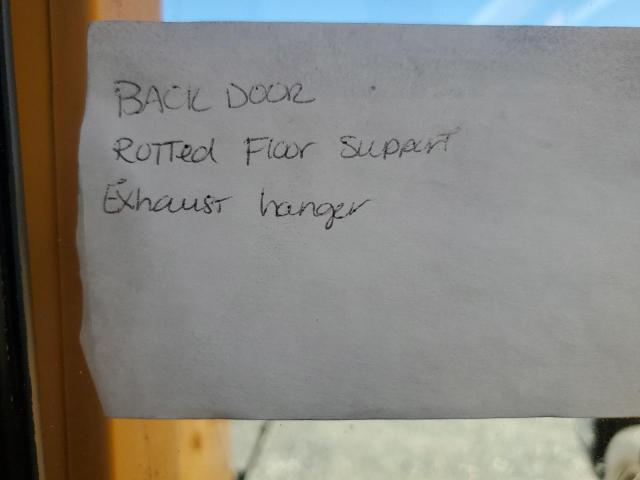 BACK DOOR
ROTTed Floor Support
Exhaust hanger